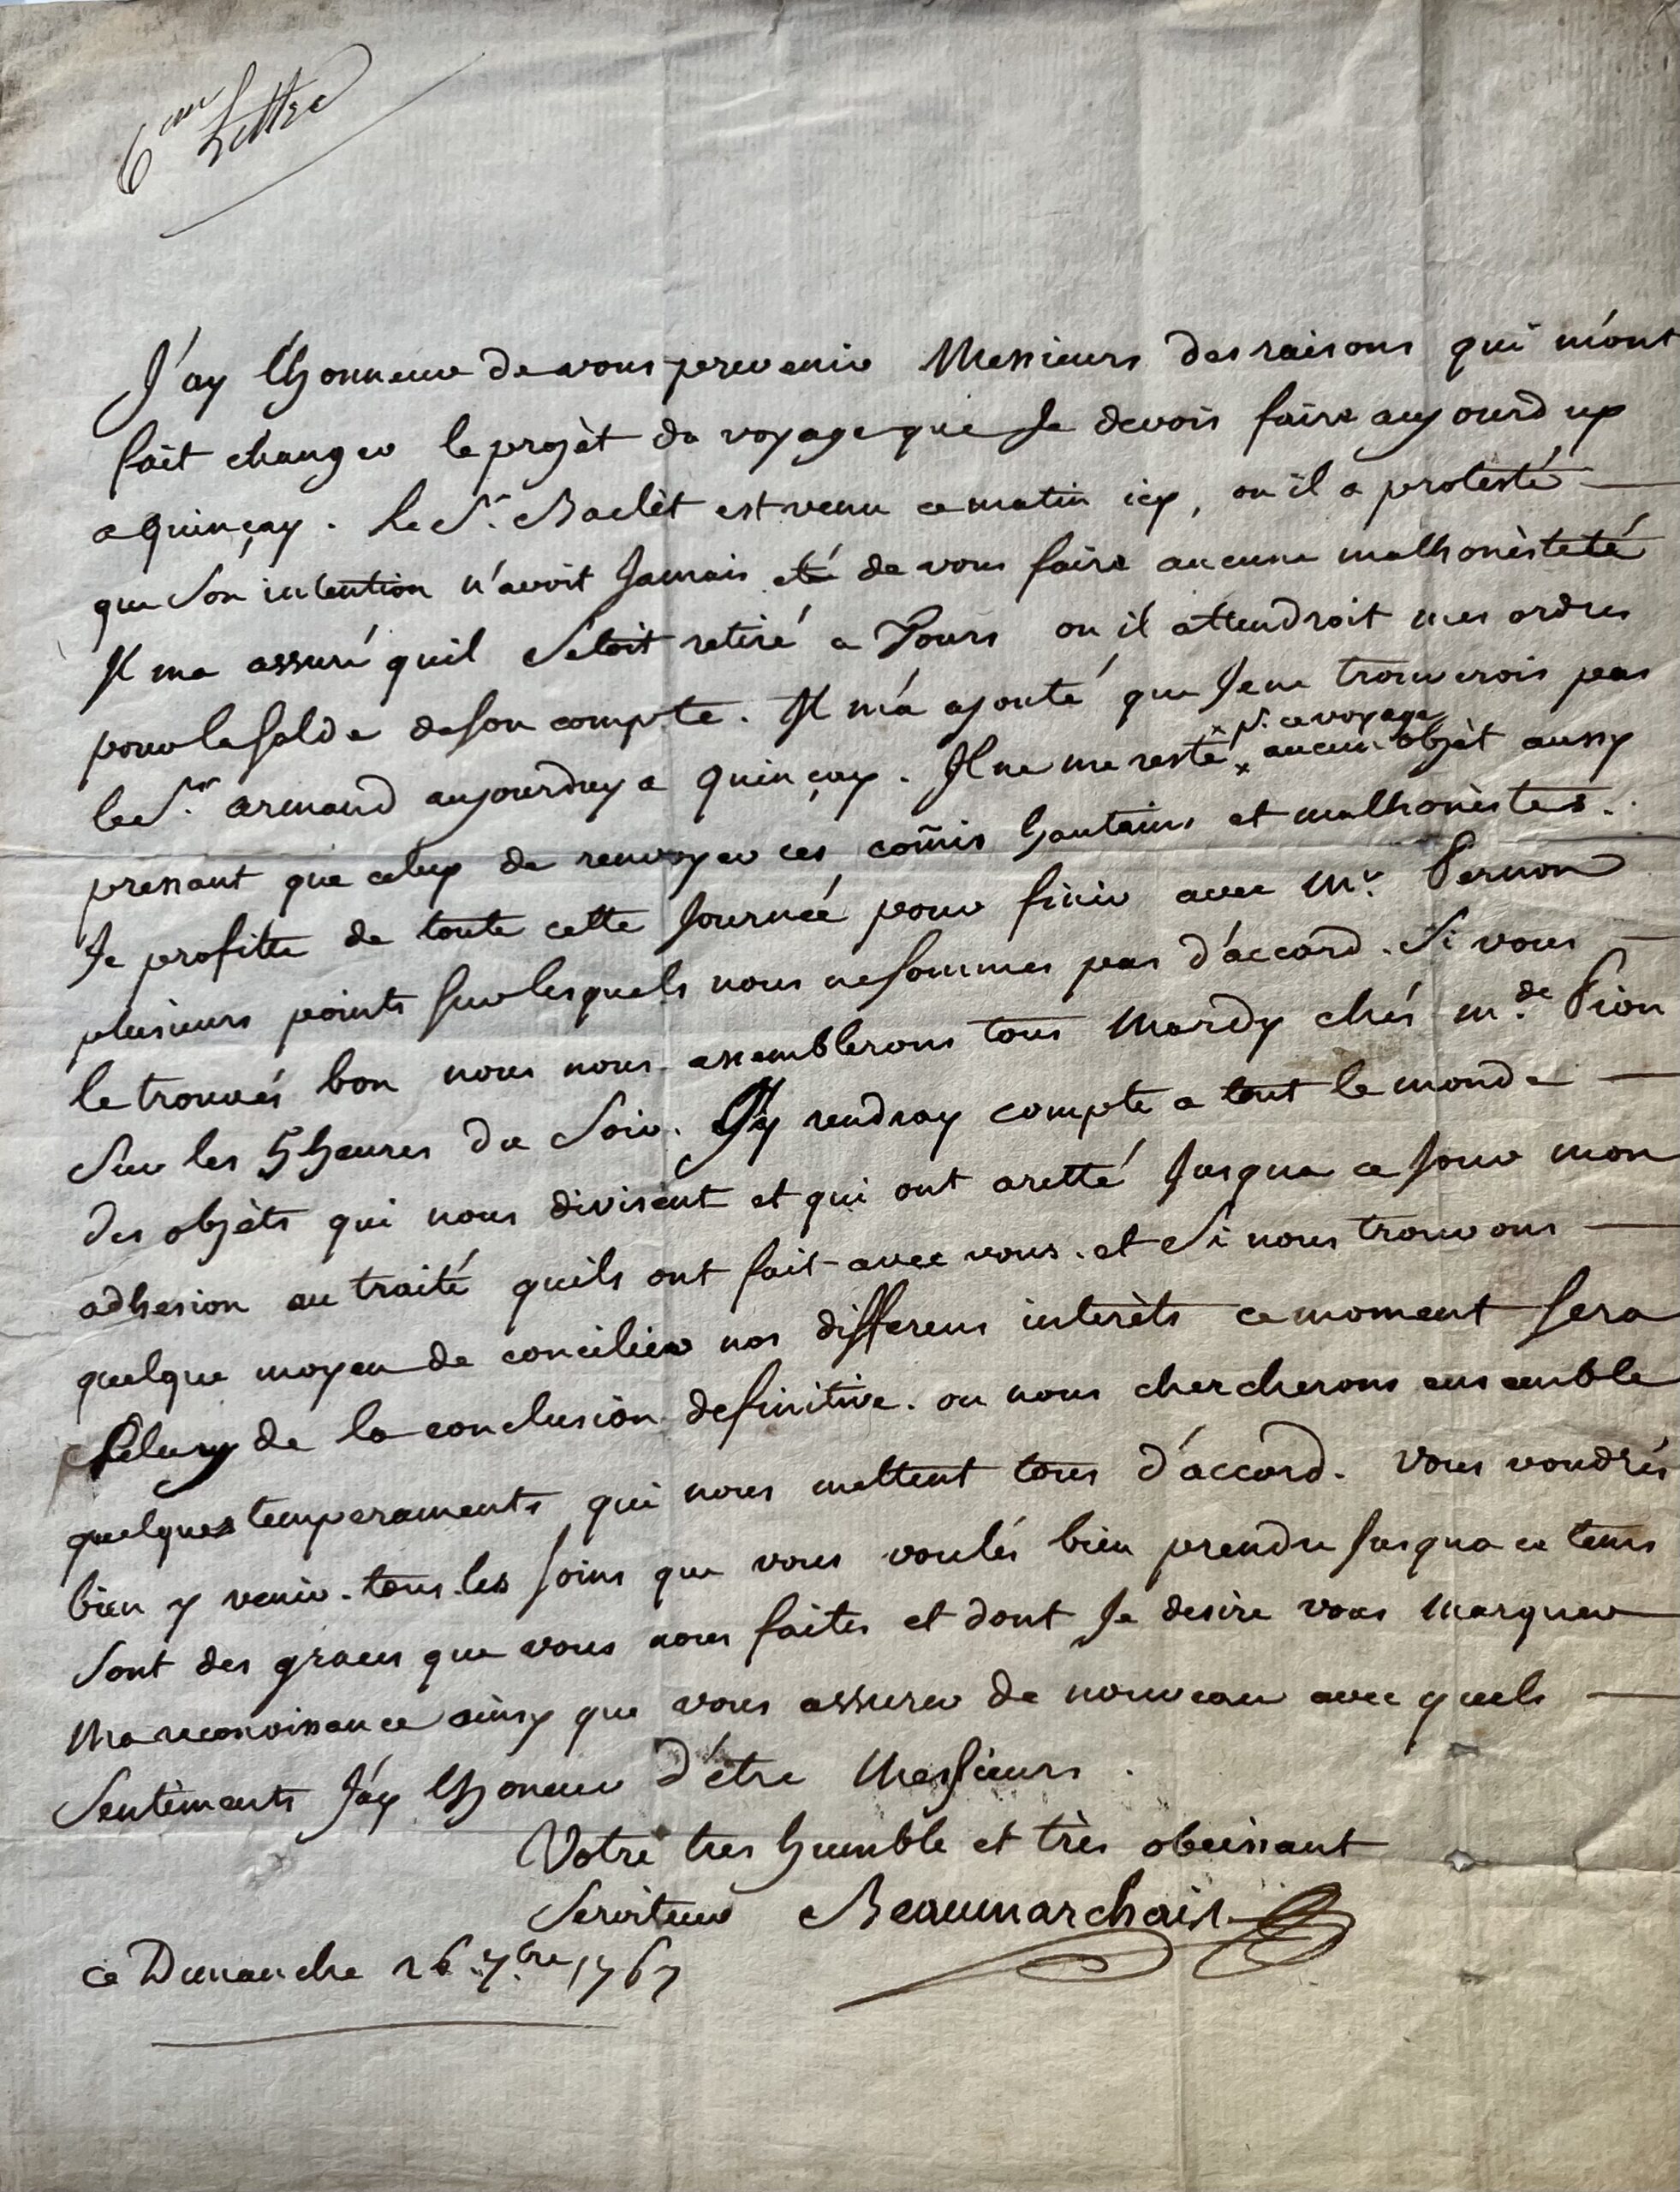 6eme Lettre
J'ay l'honneur de vous prevenir Messieurs des raisons qui m'ont
fait changer le projèt du voyage que Je devois faire aujourdup
a quinçay. Le Sr. Baclèt est venu ce matin icy, ou il a protesté
que Son intention n'avoit Jamais eté de vous faire aucune malhonèsteté
Il ma assuré quil S'etoit retiré a Tours ou il attendroit mes ordres
pour le solde de son compte. Il m'a ajouté que Je ne trouverois pas
x pr. ce voyage
le Sr. armand aujourduy a quinçay. Il ne me reste x aucun objèt aussy
pressant que celuy de renvoyer ces com̃is hautains et malhonèstes.
Je profitte de toute cette Journeé pour finir avec Mr. Pernon
plusieurs points sur lesquels nous ne sommes pas d'accord. Si vous
le trouvés bon nous nous assemblerons tous Mardy chés Mde. Pion
Sur les 5 heures du Soir. J'y rendray compte a tout le monde
des objèts qui nous divisent et qui ont aretté Jusqua ce Jour mon
adhesion au traité quils ont fait avec vous. et Si nous trouvons
quelque moyen de concilier nos differens interèts ce moment sera
Celuy de la conclusion definitive. ou nous chercherons ensemble
quelques temperaments qui nous mettent tous d'accord. Vous voudrés
bien y venir. tous les soins que vous voulés bien prendre Jusqua ce tems
Sont des graces que vous nous faites et dont Je desire vous Marquer
Ma reconoissance ainsy que vous assurer de nouveau avec quels
Sentiments J'ay l'honeur d'être Messieurs.
Votre tres humble et très obeissant
Serviteur Beaumarchais
ce Dimanche 26 7bre 1767